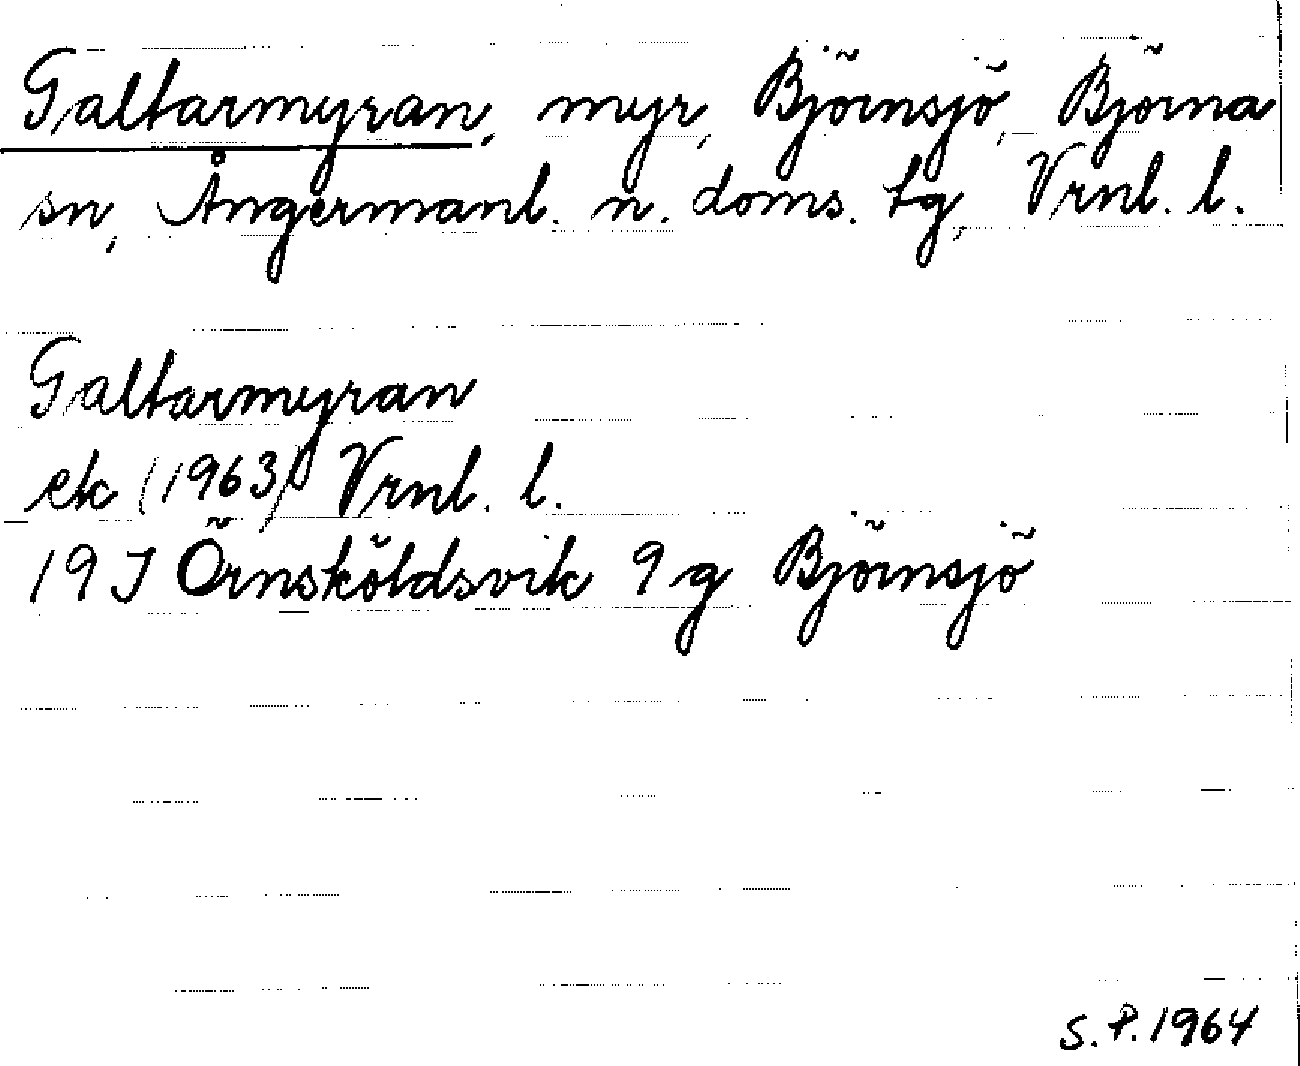 Galtarmyran, myr, Björnsjö, Björna
sn, Ångermanl. n. doms. tg, Vrnl. l.
Galtarmyran
ek (1963) Vrnl. l.
19 J Örnsköldsvik 9 g Björnsjö
S.P. 1964